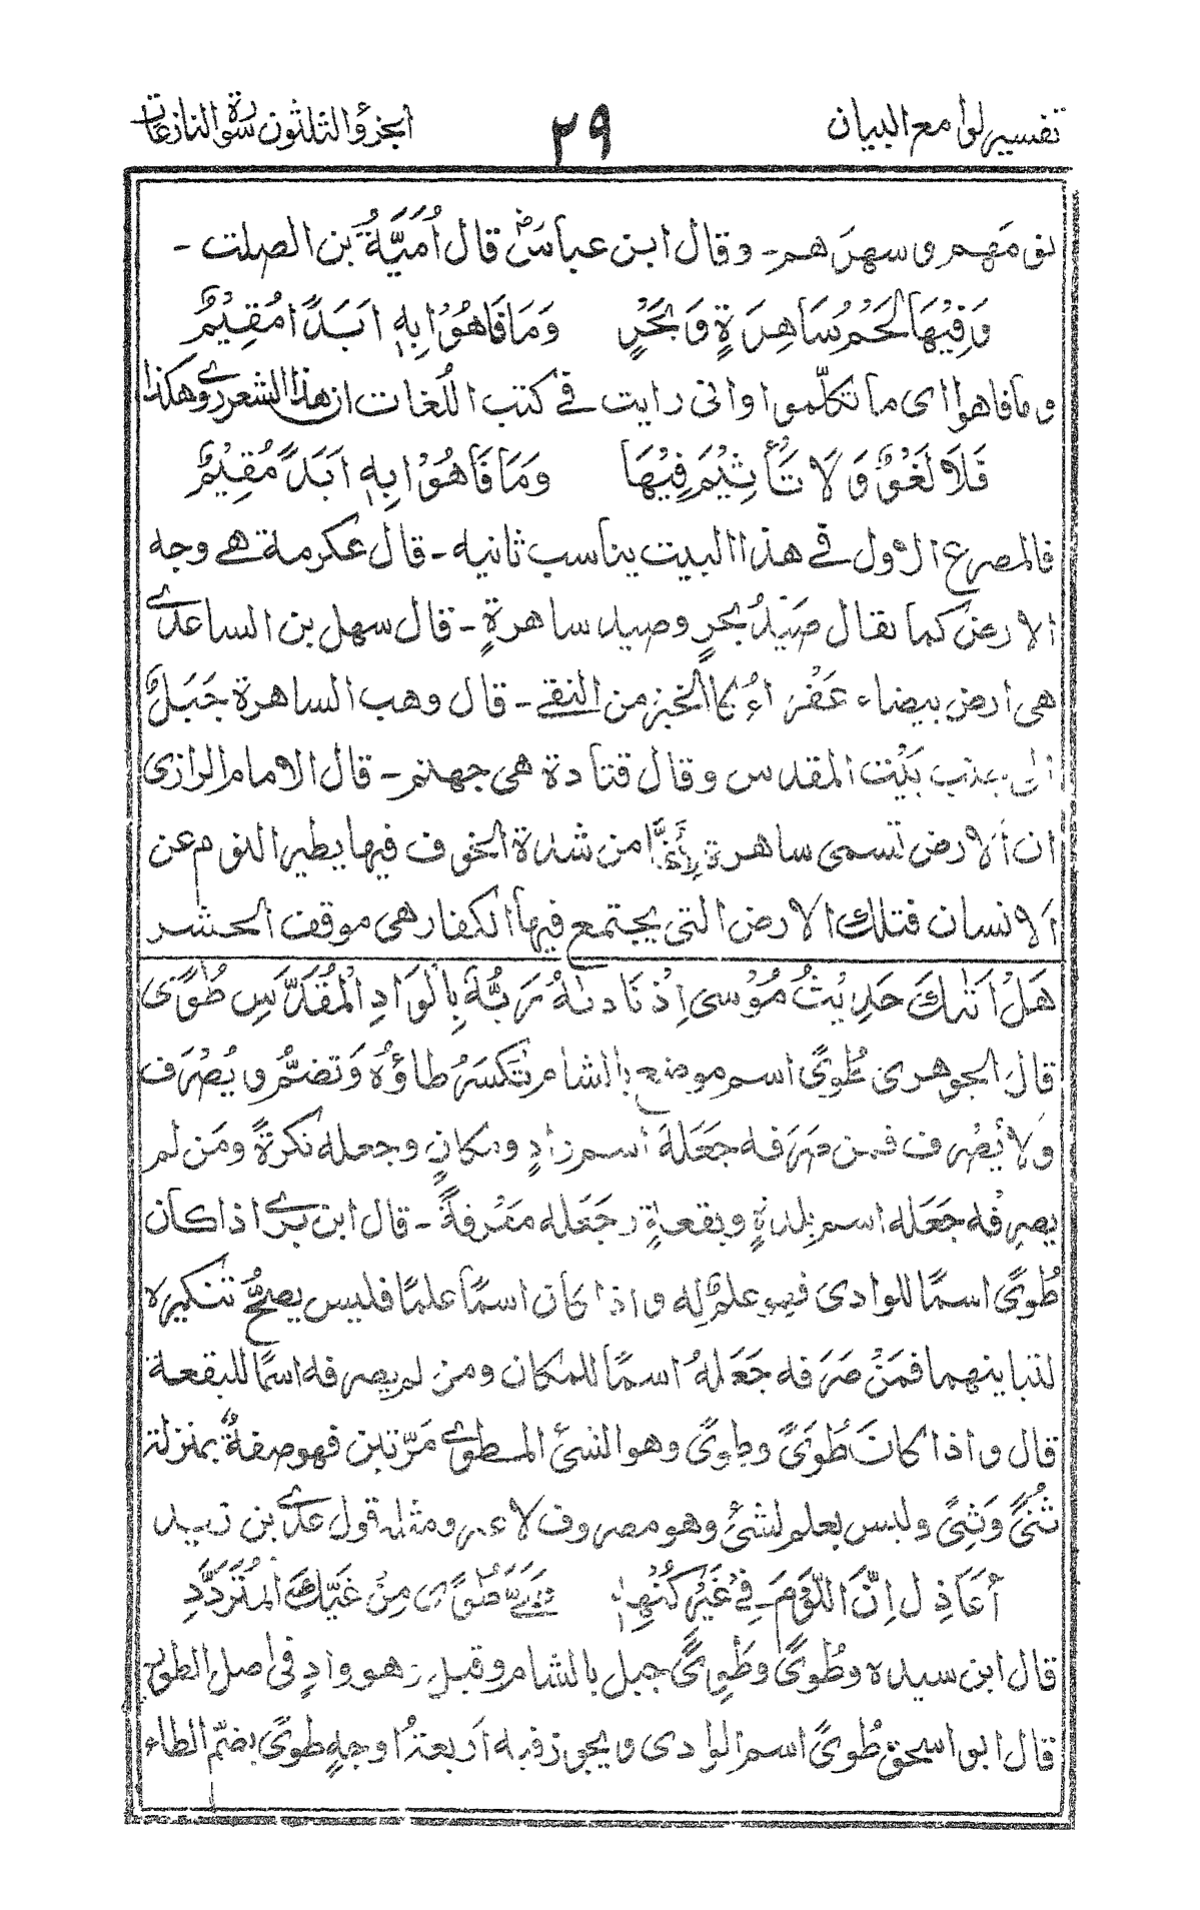 تفسير لوامع البيان ٢٩ الجزؤ الثلثون سورة النازعات
نومهم و سهرهم ـ وقال ابن عباسؓ قال اُمَيَّةُ بن الصلت ـ
وَفِيْهَا لَحْمُ سَاهِرَةٍ وَبَحْرٍ وَمَا فَاهُوْا بِهٖ اَبَدًا مُقِيْمٌ
وما فاهوا اى ما تكلّموا وانى رايت فے كتب اللُغات ان هذا الشعر روى هكذا
فَلَا لَغْوٌ وَلَا تَأْثِيْمَ فِيْهَا وَمَا فَاهُوْا بِهٖ اَبَدً مُقِيْمٌ
فالمصرع الاول فے هذا البيت يناسب ثانيه ـ قال عكرمة هے وجه
الارض كما يقال صَيْدُ بحرٍ وصيد ساهرةٍ ـ قال سهل بن الساعدے
هى ارض بيضاء عَفْرَاءُ كالخبز من النقے ـ قال وهب الساهرة جَبَلٌ
الى جنب بَيْت المقدس وقال قتادة هى جهنم ـ قال الامام الرازى
ان الارض تسمى ساهرة لأنَّ من شدة الخوف فيها يطير النوم عن
الانسان فتلك الارض التى يجتمع فيها الكفار هى موقف الحشر
هَلْ اَتٰىكَ حَدِيْثُ مُوْسٰى اِذْ نَادٰىهُ رَبُّهٗ بِالْوَادِ الْمُقَدَّسِ طُوًى
قال الجوهرى طُوًى اسم موضع بالشام تكسَرُ طاؤهُ وَتضمُّ و يُصْرَف
وَلا يُصْرف فمن صَرَفه جَعَلَهَ اسم وادٍ ومكانٍ وجعله نكرةً ومَن لم
يصرِفْه جَعَله اسم بلدةٍ وبقعةٍ وجَعَله مَعْرفةً ـ قال ابن برے اذا كان
طُوًى اسمًا للوادى فهو علمٌ له واذا كان اسمًا علمًا فليس يصحُّ تنكيره
لتباينهما فمَنْ صَرَفه جَعَلهُ اسمًا للمكان ومن لم يصرفه اسمًا للبقعة
قال واذا كانَ طُوًى وطِوًى وهو الشئ المطوے مَرّتين فهو صفةٌ بمنزلة
ثُنًى وَثِنًى وليس بعلم لشئ وهو مصروف لا غير ومثله قول عدے بن زيد
أعَاذِل اِنَّ اللَّوْمَ فِےْ غَيْرِ كُنْهِهٖ طُوًى مِنْ غَيِّكَ المُتَرَدِّدِ
قال ابن سيده وطُوًى وطِوًى جبل بالشام وقيل هو وادٍ فى اصل الطور
قال ابو اسحق طُوًى اسم الوادى ويجوز فيه اَربعةُ اوجهٍ طوًى بضمّ الطاء